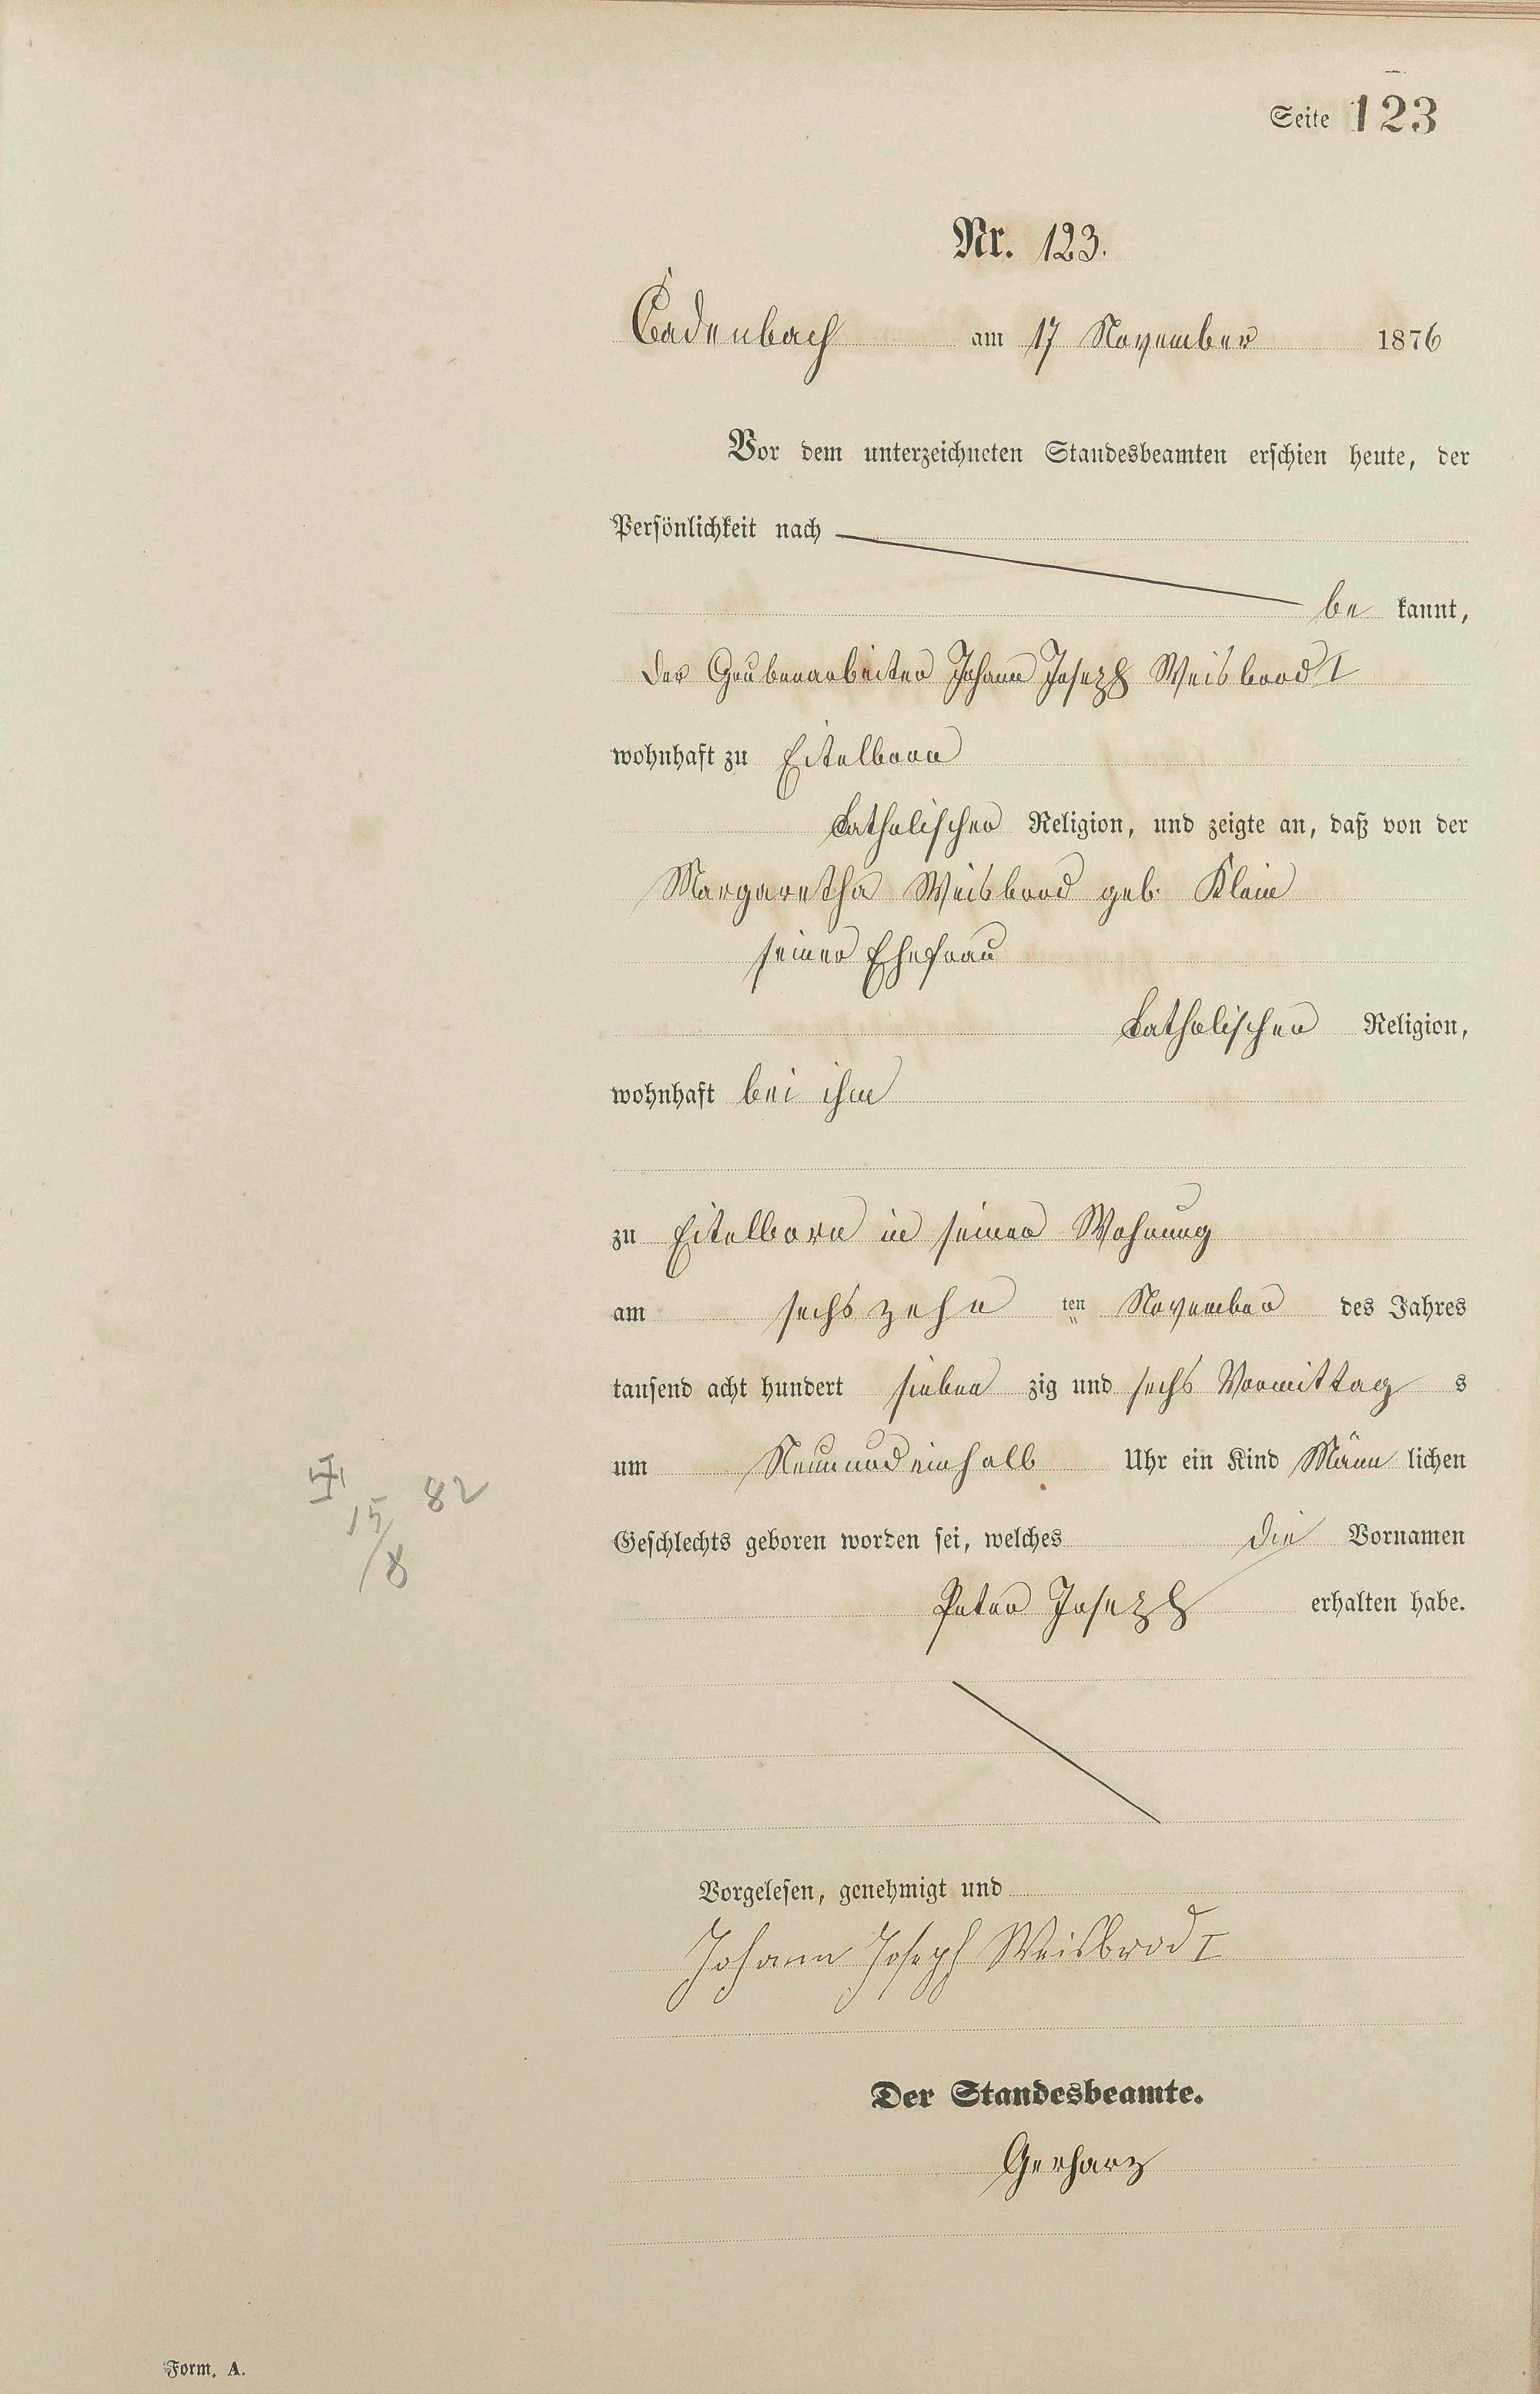 Seite 123
Nr. 123.
Cadenbach am 17 November 1876
Vor dem unterzeichneten Standesbeamten erschien heute, der
Persönlichkeit nach
be kannt,
der Grubenarbeiter Johann Joseph Weisbrod I
wohnhaft zu Eitelborn
katholischer Religion, und zeigte an, daß von der
Margaretha Weisbrod geb. Klein
seiner Ehefrau
katholischer Religion,
wohnhaft bei ihm
zu Eitelborn in seiner Wohnung
am sechs zehn ten November des Jahres
tausend acht hundert sieben zig und sechs Vormittag s
um Neunundeinhalb Uhr ein Kind Männ lichen
Geschlechts geboren worden sei, welches die Vornamen
Peter Joseph erhalten habe.
15/8 82
Vorgelesen, genehmigt und
Johann Joseph Weisbrod I
Der Standesbeamte.
Gerharz
Form. A.